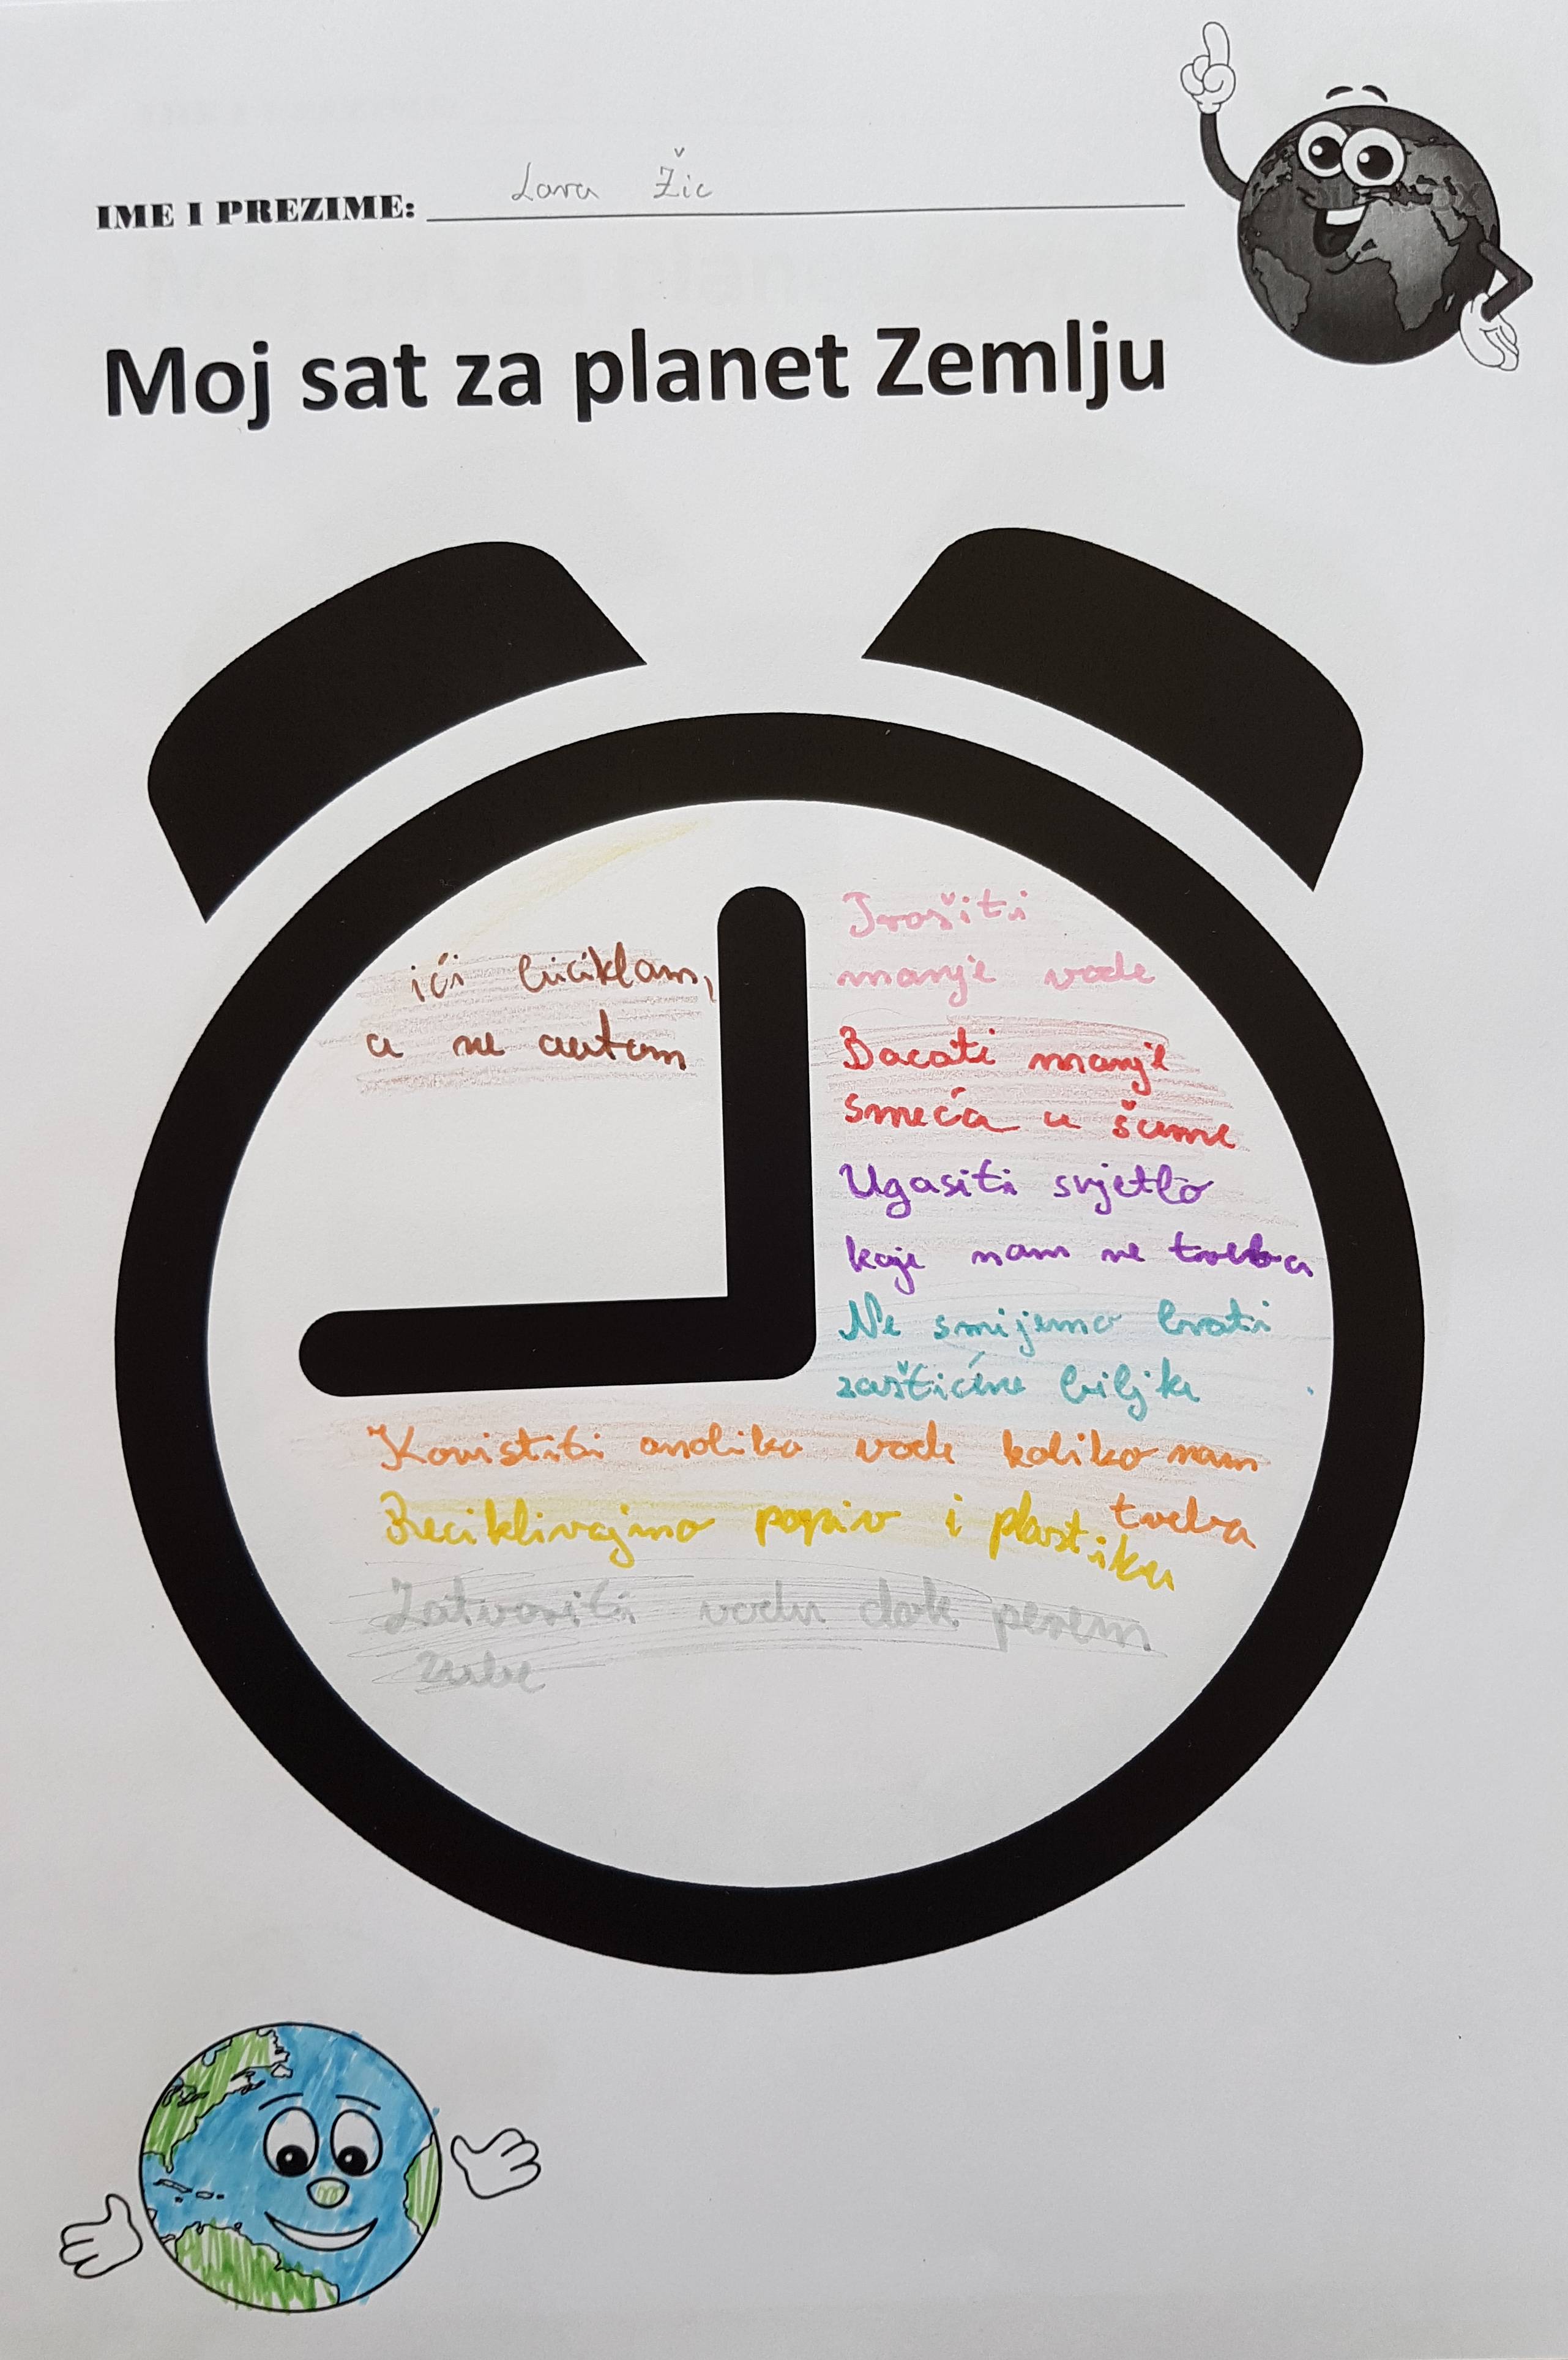 IME I PREZIME: Lara Žic
Moj sat za planet Zemlju
ići biciklom,
a ne autom
Trošiti
manje vode
Bacati manje
smeća u šume
Ugasiti svjetlo
koje nam ne treba
Ne smijemo brati
zaštićene biljke
Koristiti onoliko vode koliko nam
treba
Reciklirajmo papir i plastiku
Zatvoriti vodu dok perem
zube